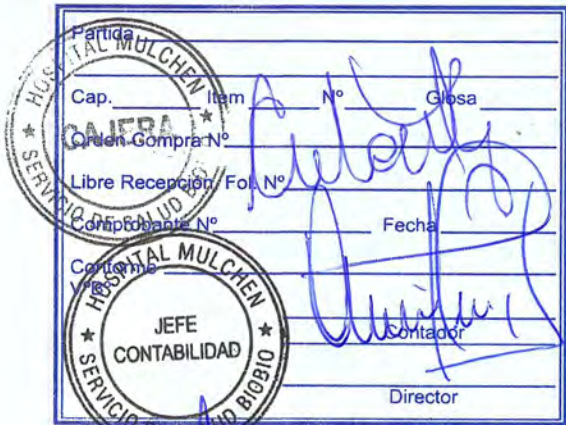 Partida
Cap. Item Nº Glosa
Orden Compra Nº
Libre Recepción, Fol. Nº
Comprobante Nº Fecha
Conforme
VºBº
Contador
Director
HOSPITAL MULCHEN
CAJERA
SERVICIO DE SALUD BIO
HOSPITAL MULCHEN
JEFE
CONTABILIDAD
SERVICIO UD BIOBIO